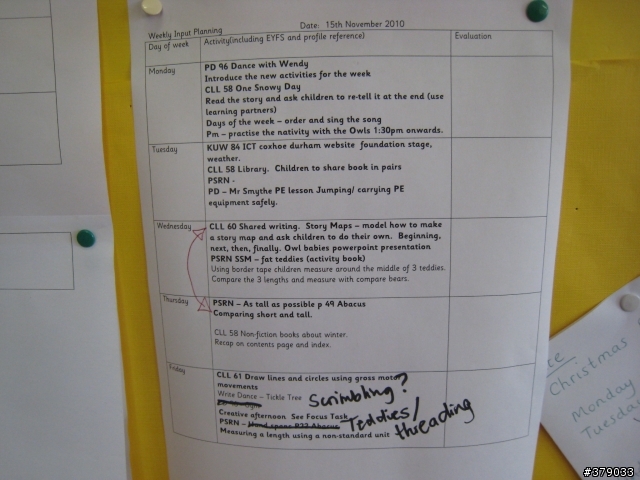 Weekly Input Planning
Date: 15th November 2010
Day of week
Activity(including EYFS and profile reference)
Evaluation
Monday
PD 96 Dance with Wendy
Introduce the new activities for the week
CLL 58 One Snowy Day
Read the story and ask children to re-tell it at the end (use
learning partners)
Days of the week – order and sing the song
Pm – practise the nativity with the Owls 1:30pm onwards.
Tuesday
KUW 84 ICT coxhoe durham website foundation stage,
weather.
CLL 58 Library. Children to share book in pairs
PSRN -
PD – Mr Smythe PE lesson Jumping/ carrying PE
equipment safely.
Wednesday
CLL 60 Shared writing. Story Maps – model how to make
a story map and ask children to do their own. Beginning,
next, then, finally. Owl babies powerpoint presentation
PSRN SSM – fat teddies (activity book)
Using border tape children measure around the middle of 3 teddies.
Compare the 3 lengths and measure with compare bears.
Thursday
PSRN – As tall as possible p 49 Abacus
Comparing short and tall.
CLL 58 Non-fiction books about winter.
Recap on contents page and index.
Friday
CLL 61 Draw lines and circles using gross motor
movements
Write Dance – Tickle Tree
Scrimbling?
Creative afternoon See Focus Task
PSRN – Hand spans P22 Abacus
Teddies/
threading
Measuring a length using a non-standard unit
Christmas
Monday
Tuesday
#379033